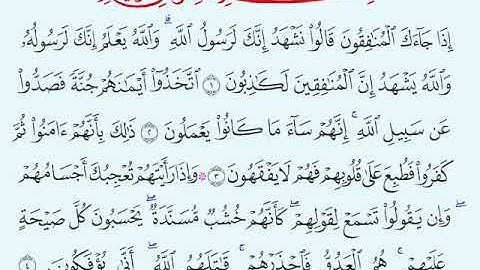 إِذَا جَآءَكَ ٱلْمُنَـٰفِقُونَ قَالُوا۟ نَشْهَدُ إِنَّكَ لَرَسُولُ ٱللَّهِ ۗ وَٱللَّهُ يَعْلَمُ إِنَّكَ لَرَسُولُهُۥ
وَٱللَّهُ يَشْهَدُ إِنَّ ٱلْمُنَـٰفِقِينَ لَكَـٰذِبُونَ ١ ٱتَّخَذُوٓا۟ أَيْمَـٰنَهُمْ جُنَّةً فَصَدُّوا۟
عَن سَبِيلِ ٱللَّهِ ۚ إِنَّهُمْ سَآءَ مَا كَانُوا۟ يَعْمَلُونَ ٢ ذَٰلِكَ بِأَنَّهُمْ ءَامَنُوا۟ ثُمَّ
كَفَرُوا۟ فَطُبِعَ عَلَىٰ قُلُوبِهِمْ فَهُمْ لَا يَفْقَهُونَ ٣ ۞ وَإِذَا رَأَيْتَهُمْ تُعْجِبُكَ أَجْسَامُهُمْ ۖ
وَإِن يَقُولُوا۟ تَسْمَعْ لِقَوْلِهِمْ ۖ كَأَنَّهُمْ خُشُبٌ مُّسَنَّدَةٌ ۖ يَحْسَبُونَ كُلَّ صَيْحَةٍ
عَلَيْهِمْ ۚ هُمُ ٱلْعَدُوُّ فَٱحْذَرْهُمْ ۚ قَـٰتَلَهُمُ ٱللَّهُ ۖ أَنَّىٰ يُؤْفَكُونَ ٤